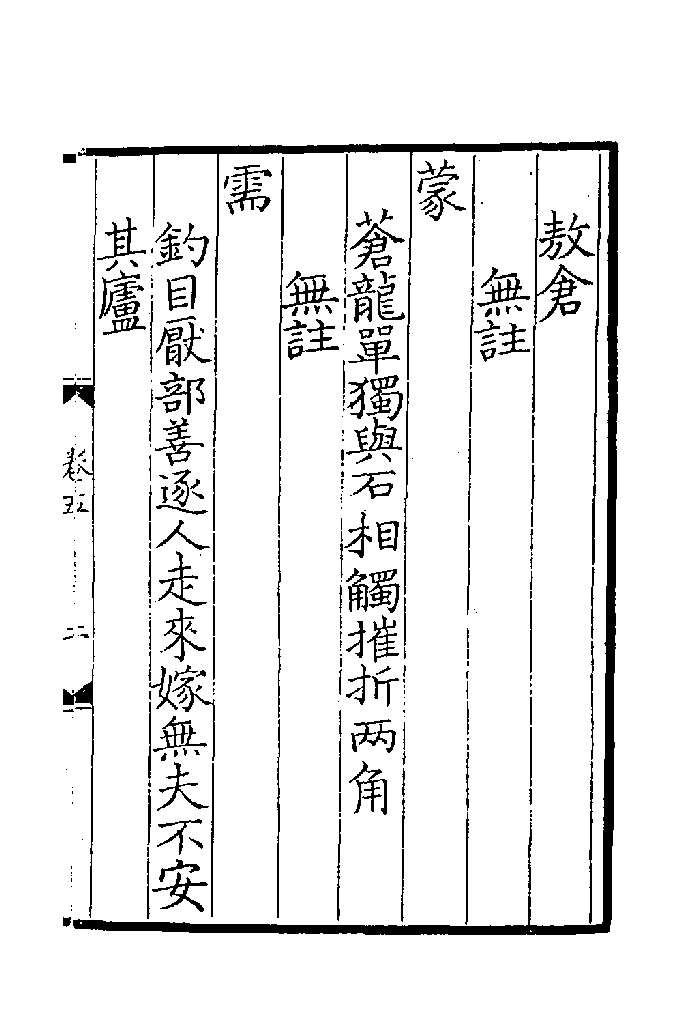 敖倉
無註
蒙
蒼龍單獨與石相觸摧折兩角
無註
需
釣目厭部善逐人走來嫁無夫不安
其廬
卷五
二